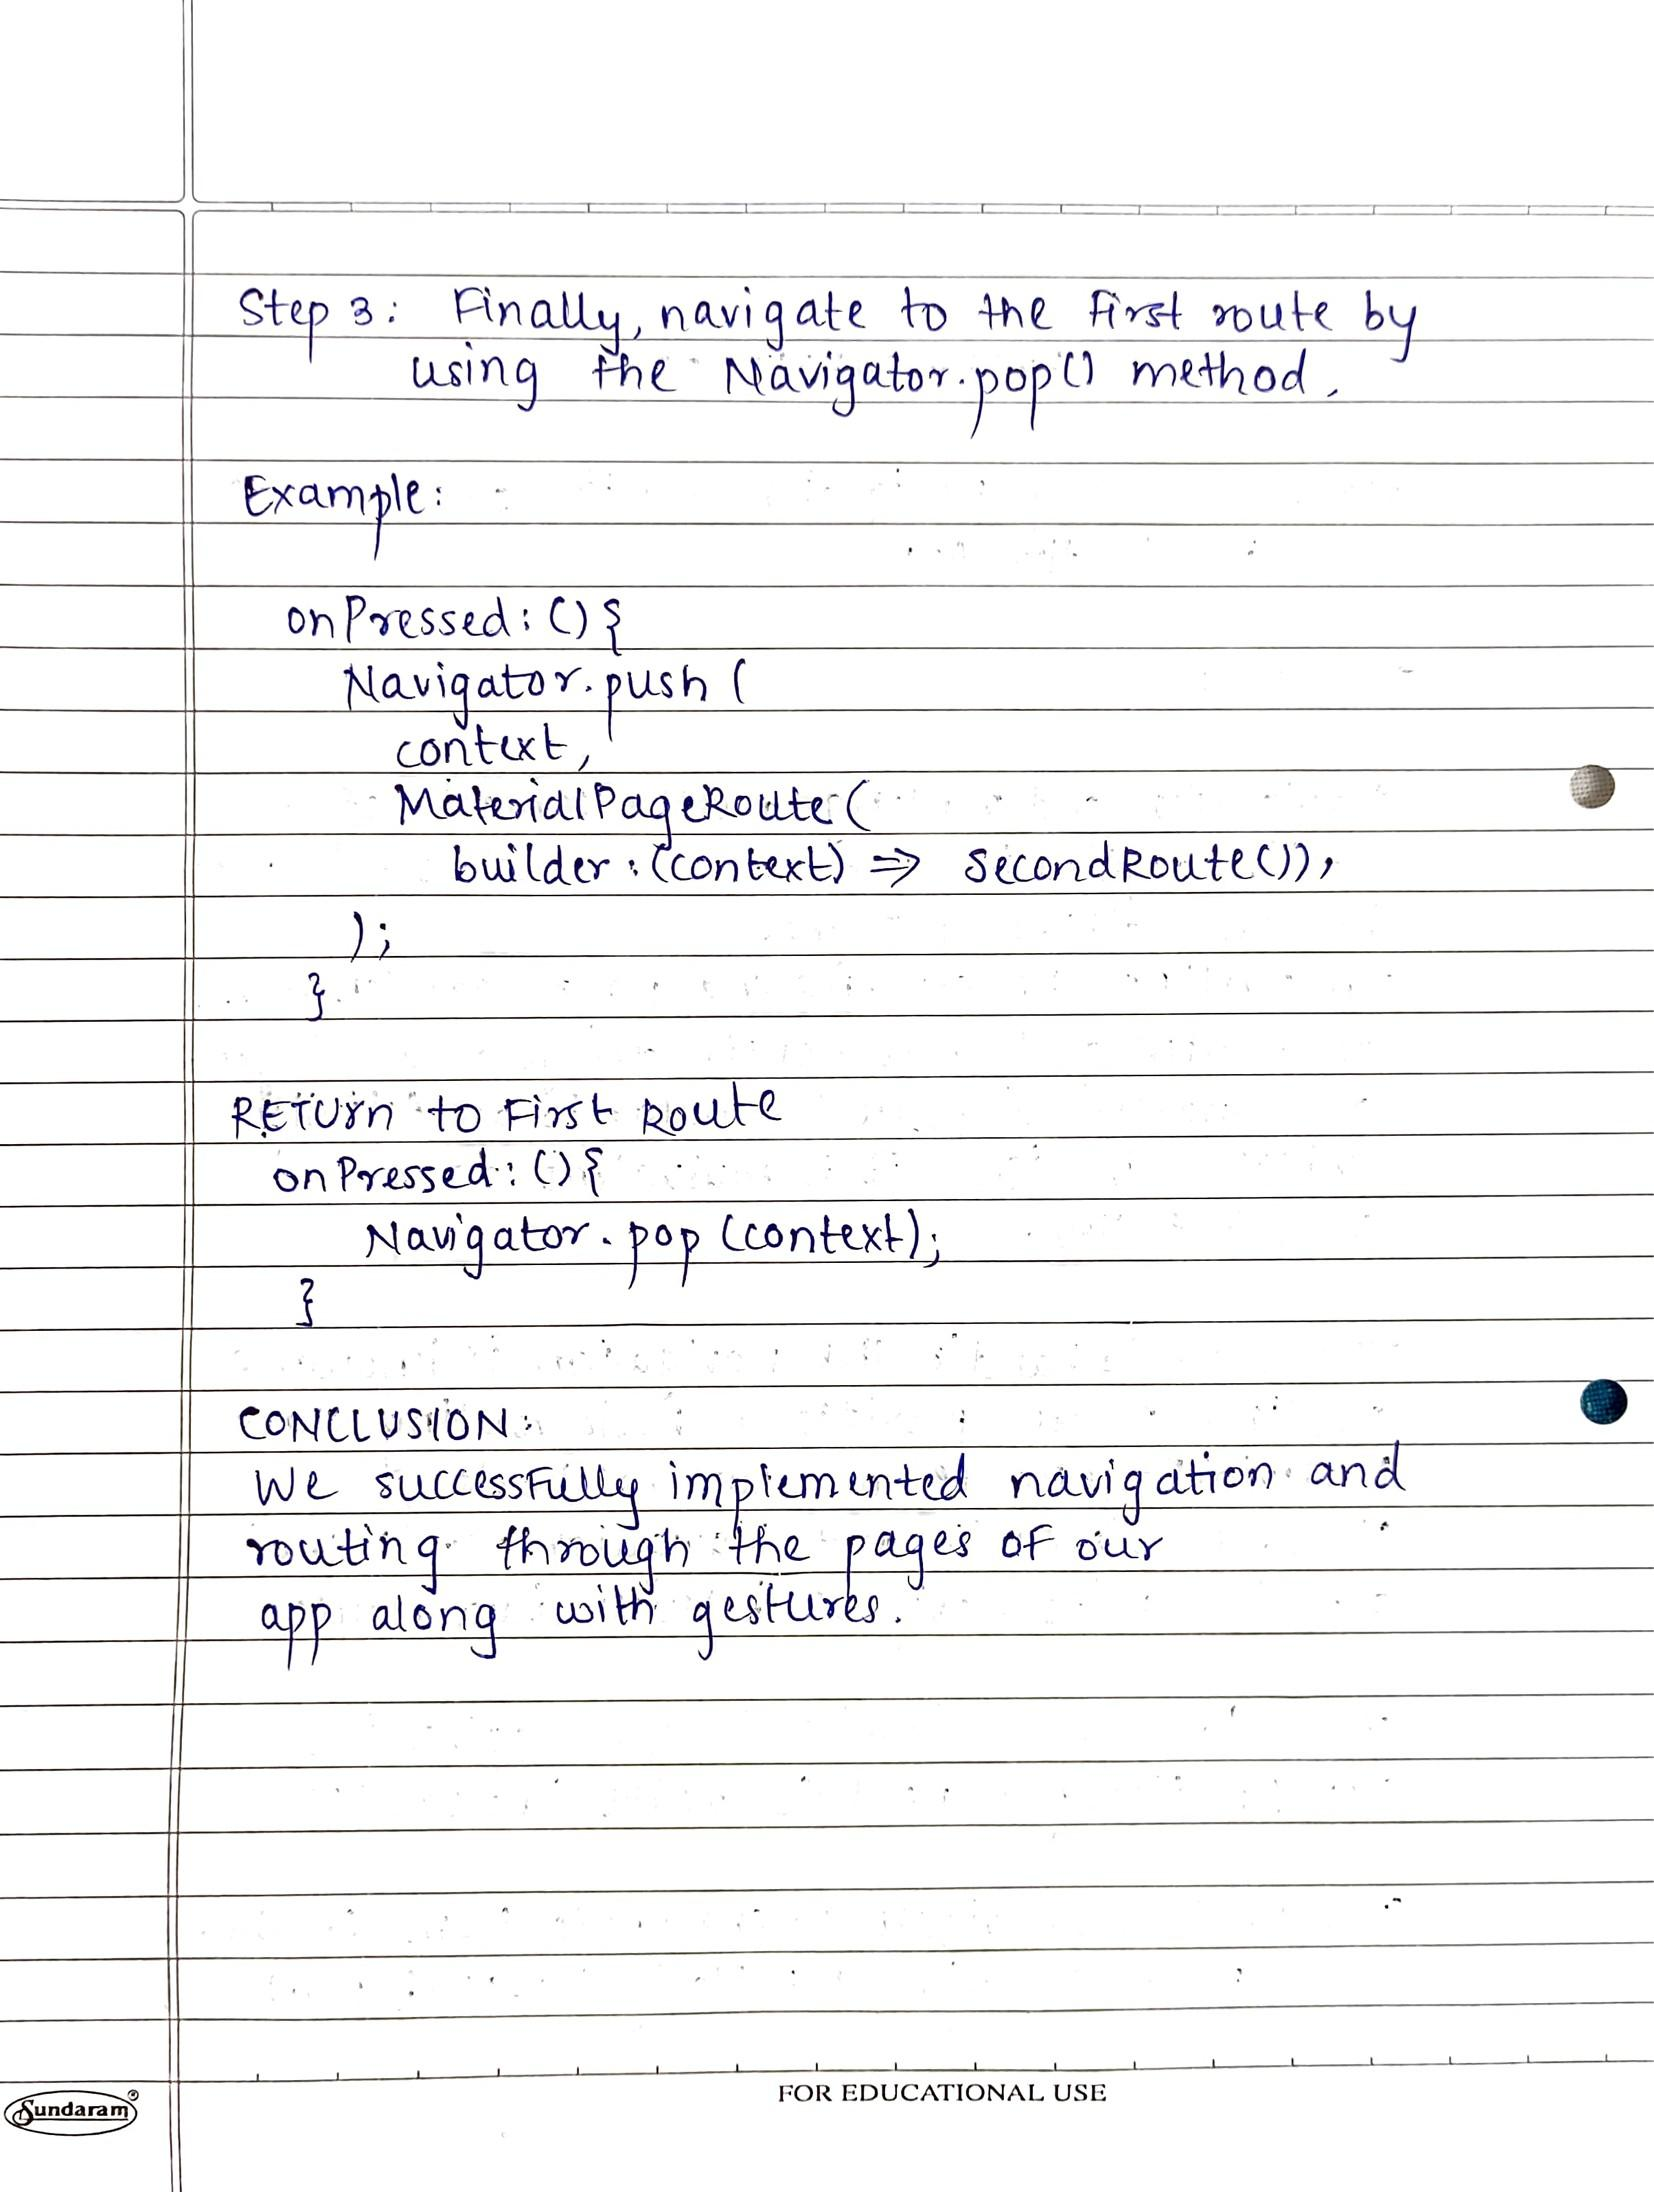 Step 3: Finally, navigate to the first route by
using the Navigator.pop() method.
Example:
onPressed: () {
Navigator.push (
context,
MaterialPageRoute(
builder: (context) => SecondRoute()),
);
}
RETURn to First Route
onPressed: () {
Navigator.pop (context);
}
CONCLUSION:
We successfully implemented navigation and
routing through the pages of our
app along with gestures.
Sundaram®
FOR EDUCATIONAL USE